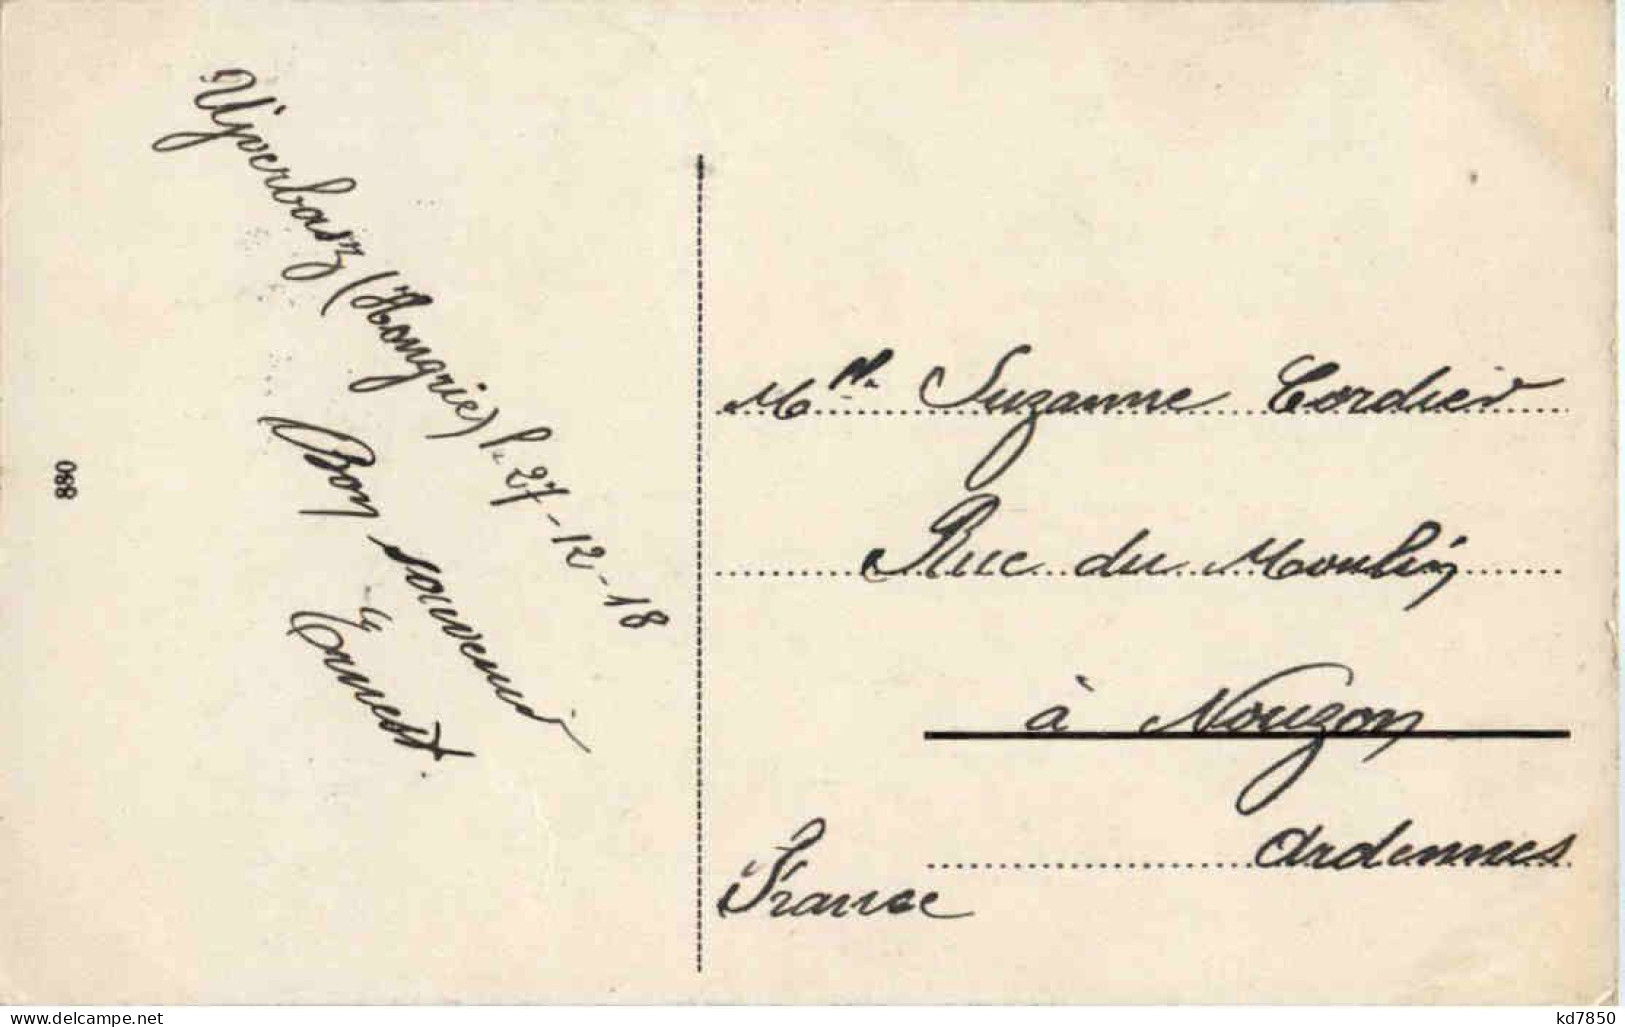 Ujverbasz (Hongrie) l. 27-12-18
Bon souvenir
Ernest.
080
Mlle. Suzanne Cordier
Rue du Moulin
à Nouzon
Ardennes
France
www.delcampe.net
kd7850